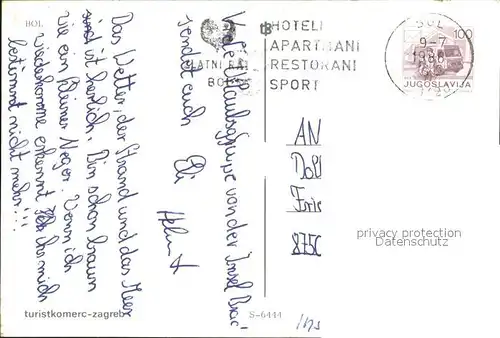 BOL
Viele Urlaubsgrüße von der Insel Brač
sendet euch Eli
Helmut
Das Wetter, der Strand und das Meer
sind ist herlich. Bin schon braun
wie ein kleiner Neger. Wenn ich
wiederkomme erkennt Ihr mich
bestimmt nicht mehr!!!
turistkomerc-zagreb
S-6444
ZLATNI RAT
BOL
HOTELI
APARTMANI
RESTORANI
SPORT
BOL
9-7
1988
100
JUGOSLAVIJA
AN
8750
privacy protection
Datenschutz